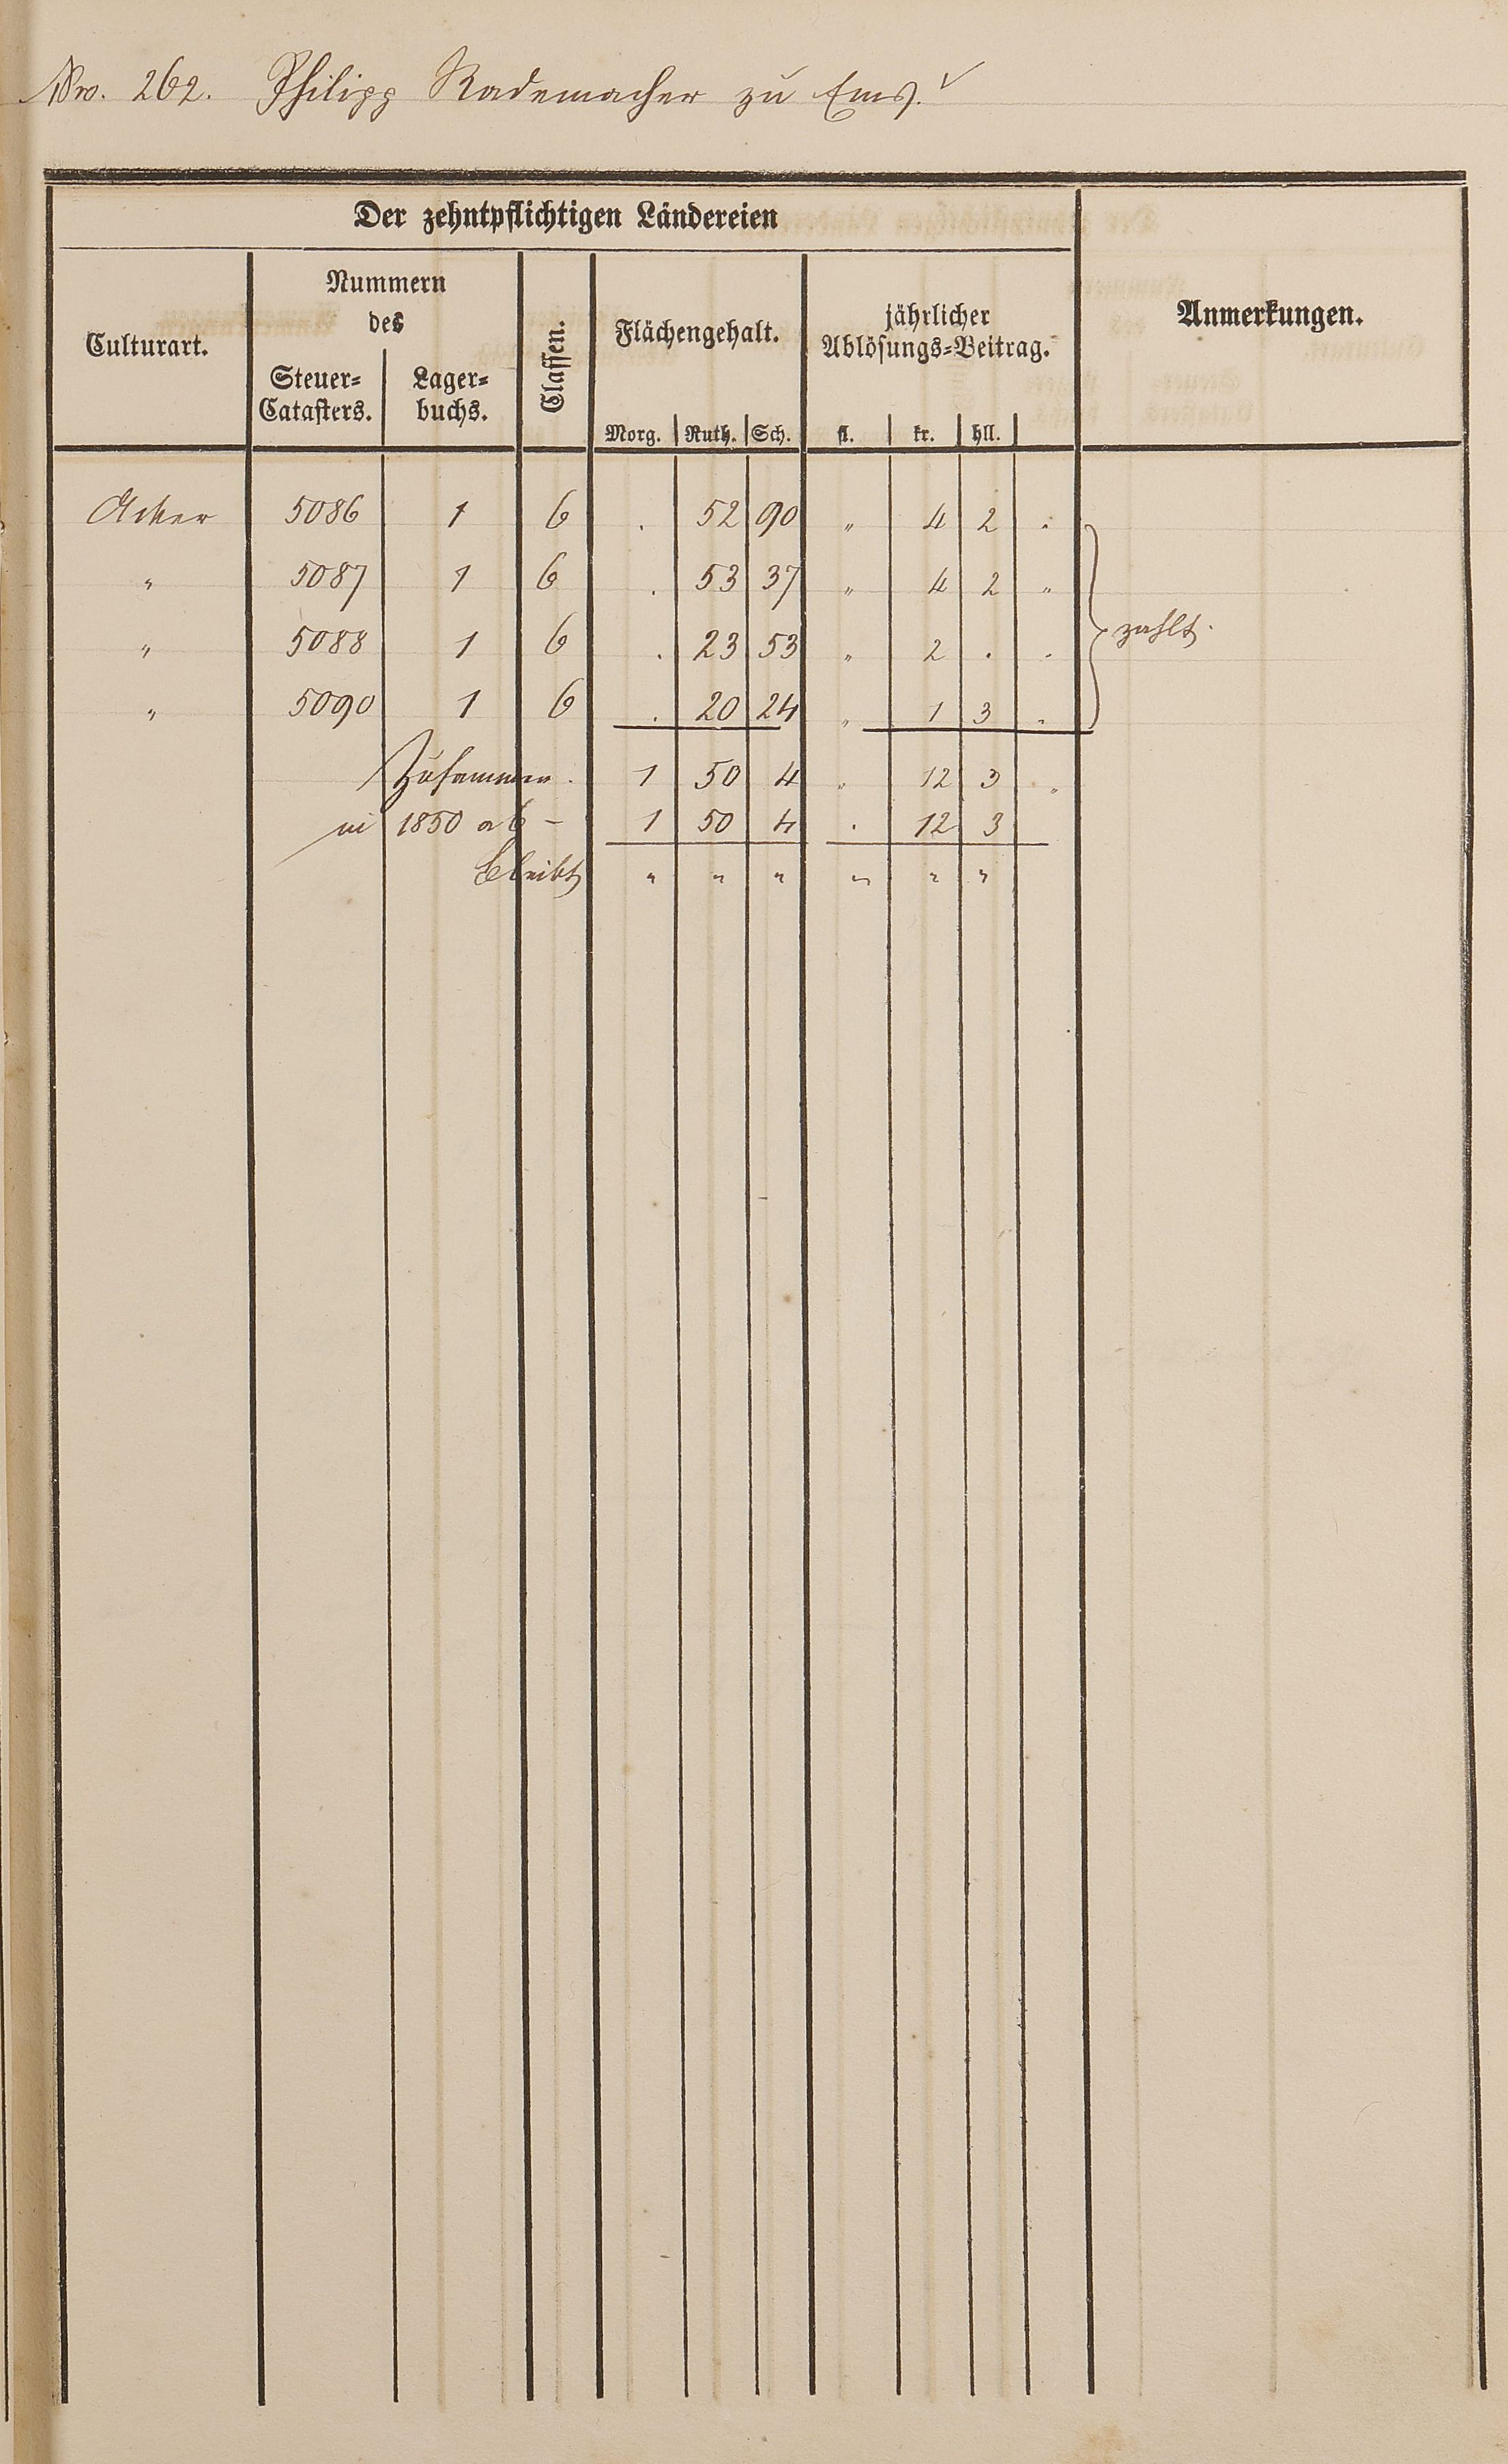 Nro. 262. Philipp Rademacher zu Ems.
Der zehntpflichtigen Ländereien
Culturart.
Nummern
des
Steuer=
Catasters.
Lager=
buchs.
Classen.
Flächengehalt.
Morg. Ruth. Sch.
jährlicher
Ablösungs=Beitrag.
fl. kr. hll.
Anmerkungen.
Acker 5086 1 6 . 52 90 „ 4 2 „
„ 5087 1 6 . 53 37 „ 4 2 „
„ 5088 1 6 . 23 53 „ 2 . .
„ 5090 1 6 . 20 24 „ 1 3 „
zahlt.
Zusammen. 1 50 4 „ 12 3 „
in 1850 ab – 1 50 4 . 12 3
bleibt „ „ „ „ „ „